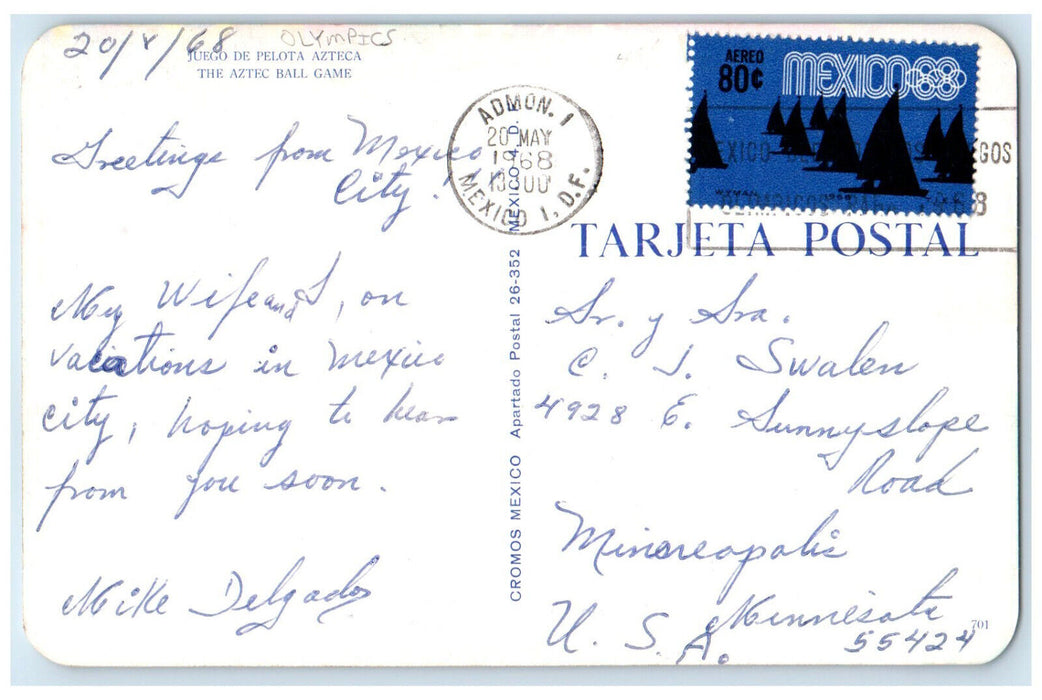 20/V/68 OLYMPICS
JUEGO DE PELOTA AZTECA
THE AZTEC BALL GAME
Greetings from Mexico
City!
My Wife and I, on
vacations in Mexico
City, hoping to hear
from you soon.
Mike Delgado
CROMOS MEXICO Apartado Postal 26-352 MEXICO 4, D.F.
ADMON. 1
20 MAY
1968
MEXICO 1, D.F.
AEREO
80¢
MEXICO68
WYMAN 1968
TARJETA POSTAL
Sr. y Sra.
C. J. Swalen
4928 E. Sunnyslope
Road
Minneapolis
Minnesota
U. S. A.
55424
701